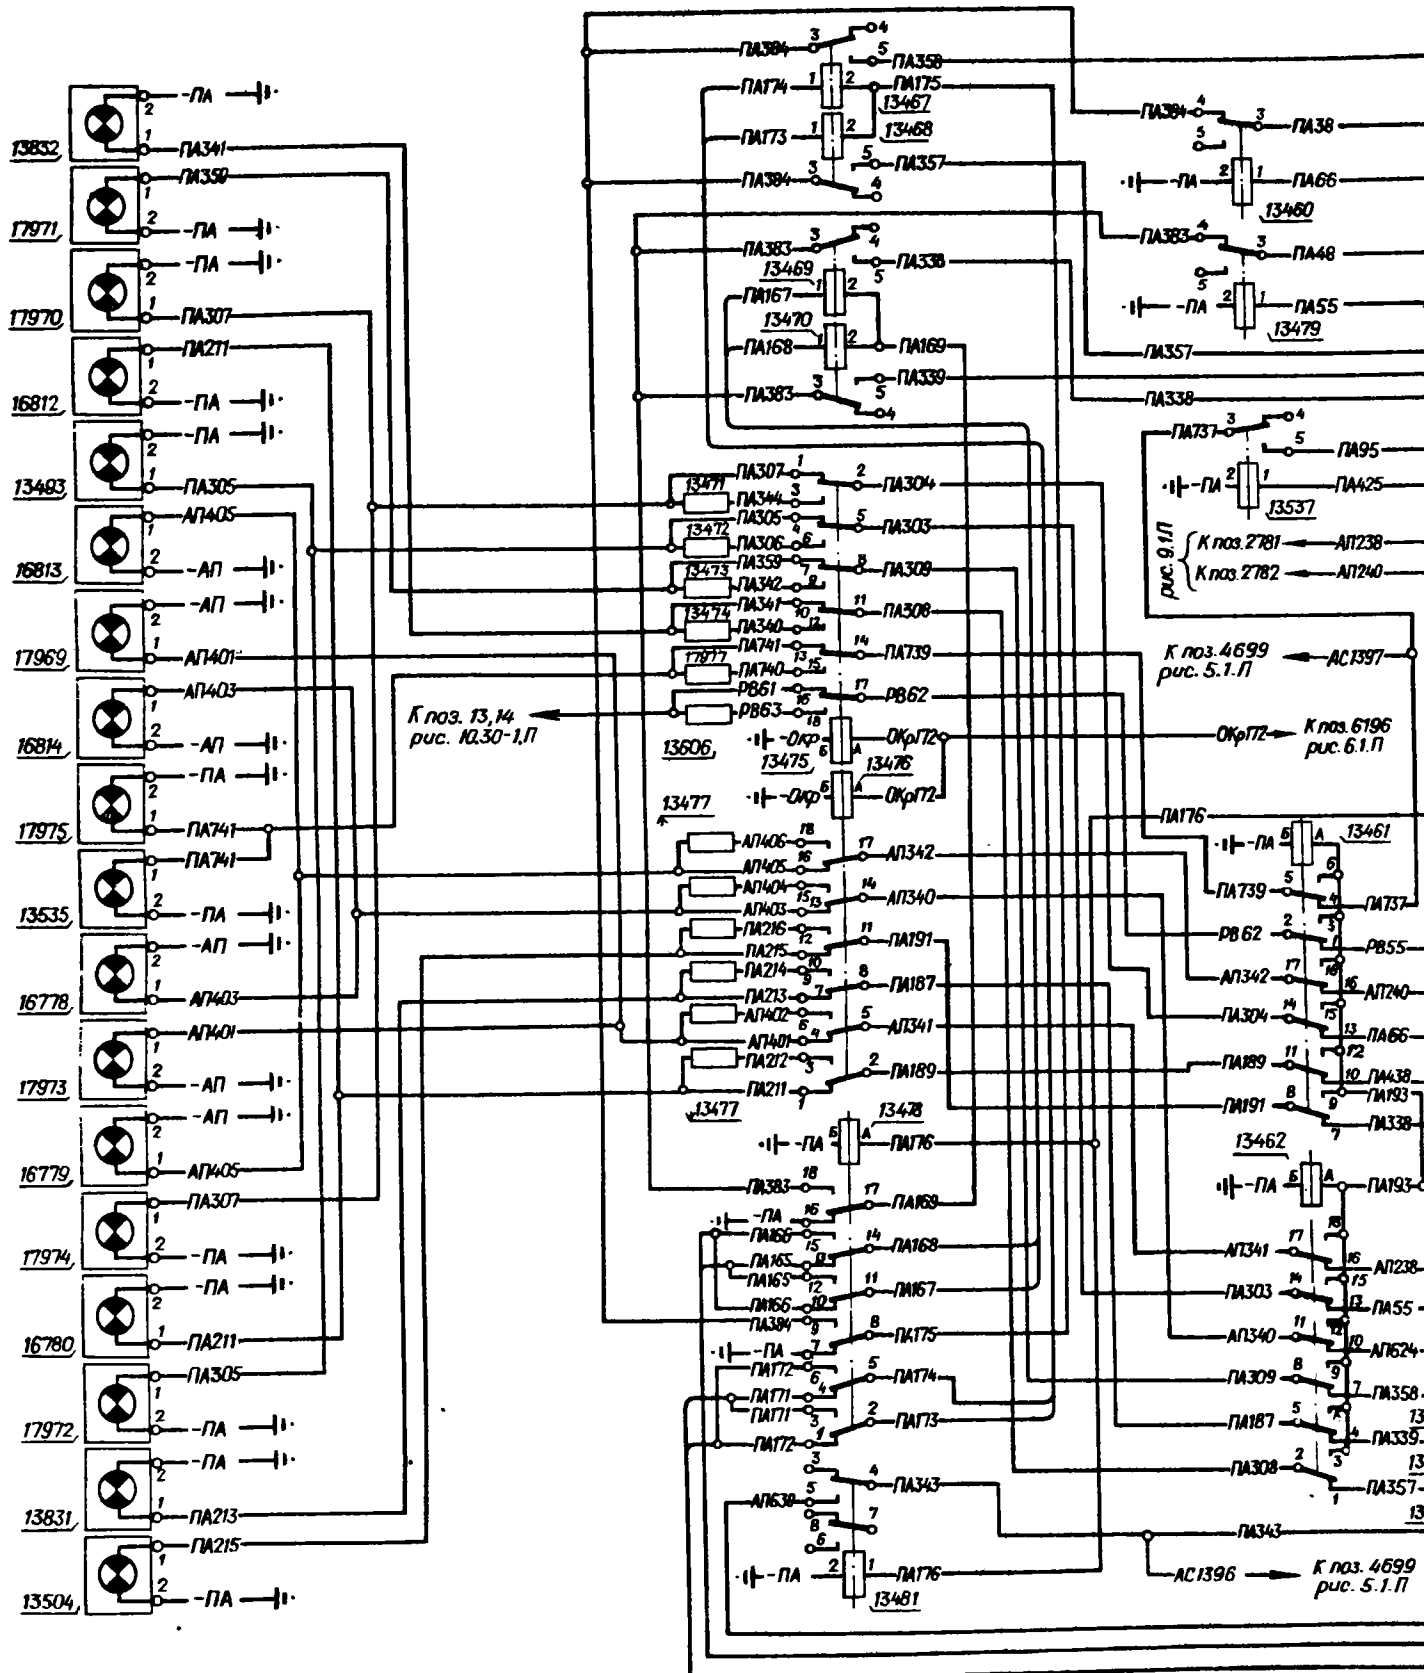 13832
-ПА
2
1
ПА341
17971
ПА359
1
2
-ПА
17970
-ПА
2
1
ПА307
16812
ПА211
1
2
-ПА
13483
-ПА
2
1
ПА305
16813
АП405
1
2
-АП
17969
-АП
2
1
АП401
16814
АП403
1
2
-АП
17975
-ПА
2
1
ПА741
13535
ПА741
1
2
-ПА
16778
-АП
2
1
АП403
17973
АП401
1
2
-АП
16779
-АП
2
1
АП405
17974
ПА307
1
2
-ПА
16780
-ПА
2
1
ПА211
17972
ПА305
1
2
-ПА
13831
-ПА
2
1
ПА213
13504
ПА215
1
2
-ПА
К поз. 13,14
рис. 10.30-1,П
ПА384 3 4
5 ПА358
ПА174 1 2 ПА175
13467
13468
ПА173 1 2
5 ПА357
ПА384 3 4
ПА383 3 4
5 ПА338
13469
ПА167 1 2
13470
ПА168 1 2 ПА169
5 ПА339
ПА383 3 4
ПА307 1 2 ПА304
13471 ПА344 3
ПА305 4 5 ПА303
13472 ПА306 6
ПА359 7 8 ПА309
13473 ПА342 9
ПА341 10 11 ПА308
13474 ПА340 12
ПА741 13 14 ПА739
17977 ПА740 15
РВ61 16 17 РВ62
РВ63 18
13606
-ОКр Б А ОКрП2
13475
13476
-ОКр Б А ОКрП2
13477
АП406 18
АП405 16 17 АП342
АП404 15
АП403 13 14 АП340
ПА216 12
ПА215 11 ПА191
ПА214 10
9
ПА213 7 8 ПА187
АП402 6
АП401 4 5 АП341
ПА212 3
ПА211 1 2 ПА189
13477
13478
-ПА Б А ПА176
ПА383 18
-ПА 16 17 ПА169
ПА166 15
ПА165 13 14 ПА168
ПА165 12
ПА166 10 11 ПА167
ПА384 9
-ПА 7 8 ПА175
ПА172 6
ПА171 4 5 ПА174
ПА171 3
ПА172 1 2 ПА173
3
4 ПА343
АП638 5
8 7
6
-ПА 2 1 ПА176
13481
ПА384 4 3 ПА38
5
-ПА 2 1 ПА66
13460
ПА383 4 3 ПА48
5
-ПА 2 1 ПА55
13479
ПА357
ПА338
ПА737 3 4
5 ПА95
-ПА 2 1 ПА425
13537
рис. 9.1.П
К поз. 2781 АП238
К поз. 2782 АП240
К поз. 4699
рис. 5.1.П
АС1397
ОКрП2
К поз. 6196
рис. 6.1.П
ПА176
-ПА Б А
13461
6
ПА739 5 4 ПА737
3
РВ62 2 1 РВ55
18
АП342 17 16 АП240
15
ПА304 14 13 ПА66
12
ПА189 11 10 ПА438
9 ПА193
ПА191 8 7 ПА338
13462
-ПА Б А ПА193
18
АП341 17 16 АП238
15
ПА303 14 13 ПА55
12
АП340 11 10 АП624
9
ПА309 8 7 ПА358
ПА187 5 4 ПА339
3
ПА308 2 1 ПА357
13
13
13
ПА343
АС1396
К поз. 4699
рис. 5.1.П